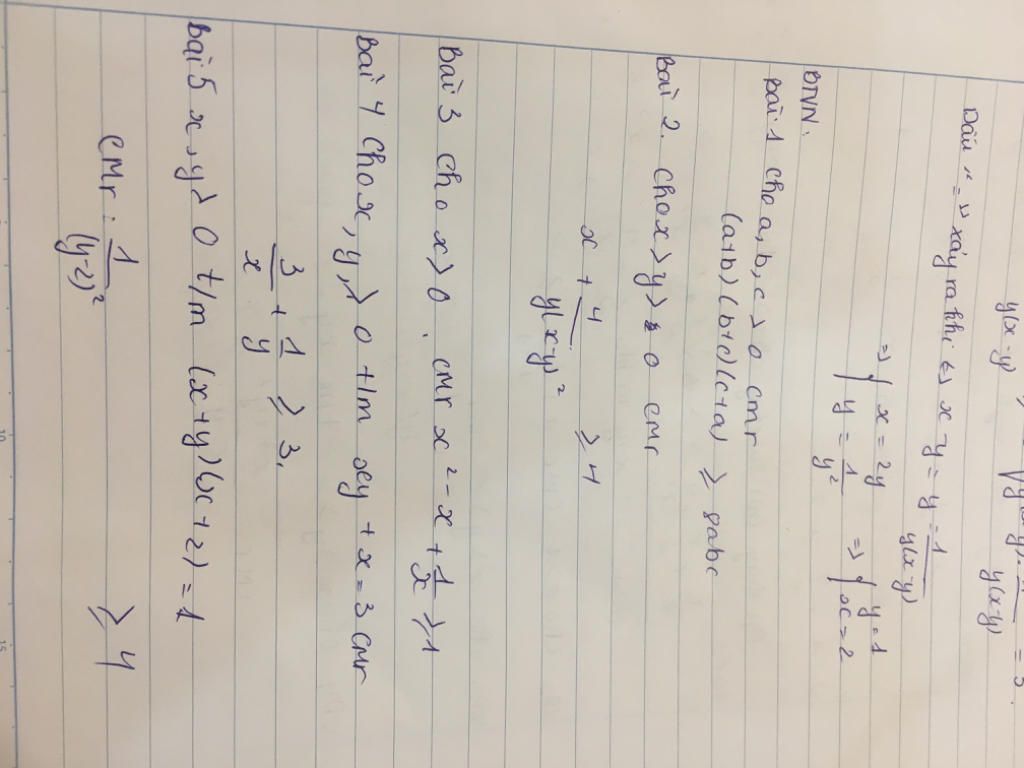 y(x-y)
y(x-y) = 3.
Dấu "=" xảy ra khi <=> x-y = y = 1/y(x-y)
=> { x = 2y
y = 1/y²
=> { y=1
x=2
BTVN:
Bài 1 cho a, b, c > 0 cmr
(a+b)(b+c)(c+a) ≥ 8abc
Bài 2. cho x > y > 0 cmr
x + 4/y(x-y)² ≥ 4
Bài 3 cho x > 0. cmr x² - x + 1/x ≥ 1
Bài 4 cho x, y, > 0 t/m xy + x = 3 cmr
3/x + 1/y ≥ 3.
Bài 5 x, y > 0 t/m (x+y)(x+z) = 1
cmr: 1/(y-z)² ≥ 4